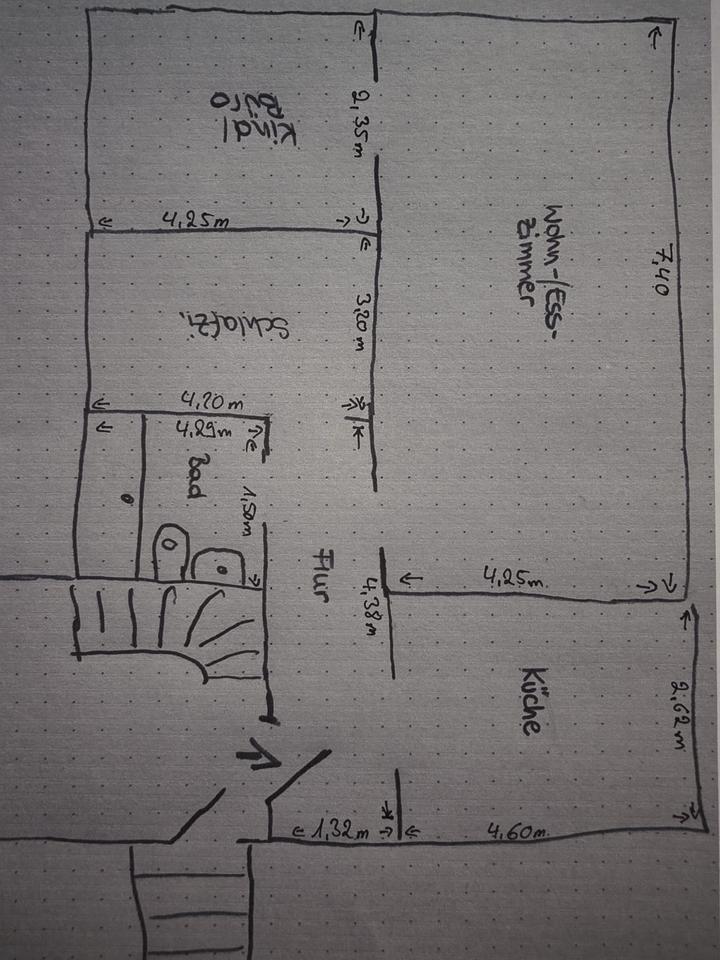 Kind/
Büro
2,35m
4,25m
Wohn-/Ess-
zimmer
7,40
Schlafzi.
3,20m
4,20m
4,29m
Bad
1,50m
Flur
4,38m
4,25m
Küche
2,62m
1,32m
4,60m